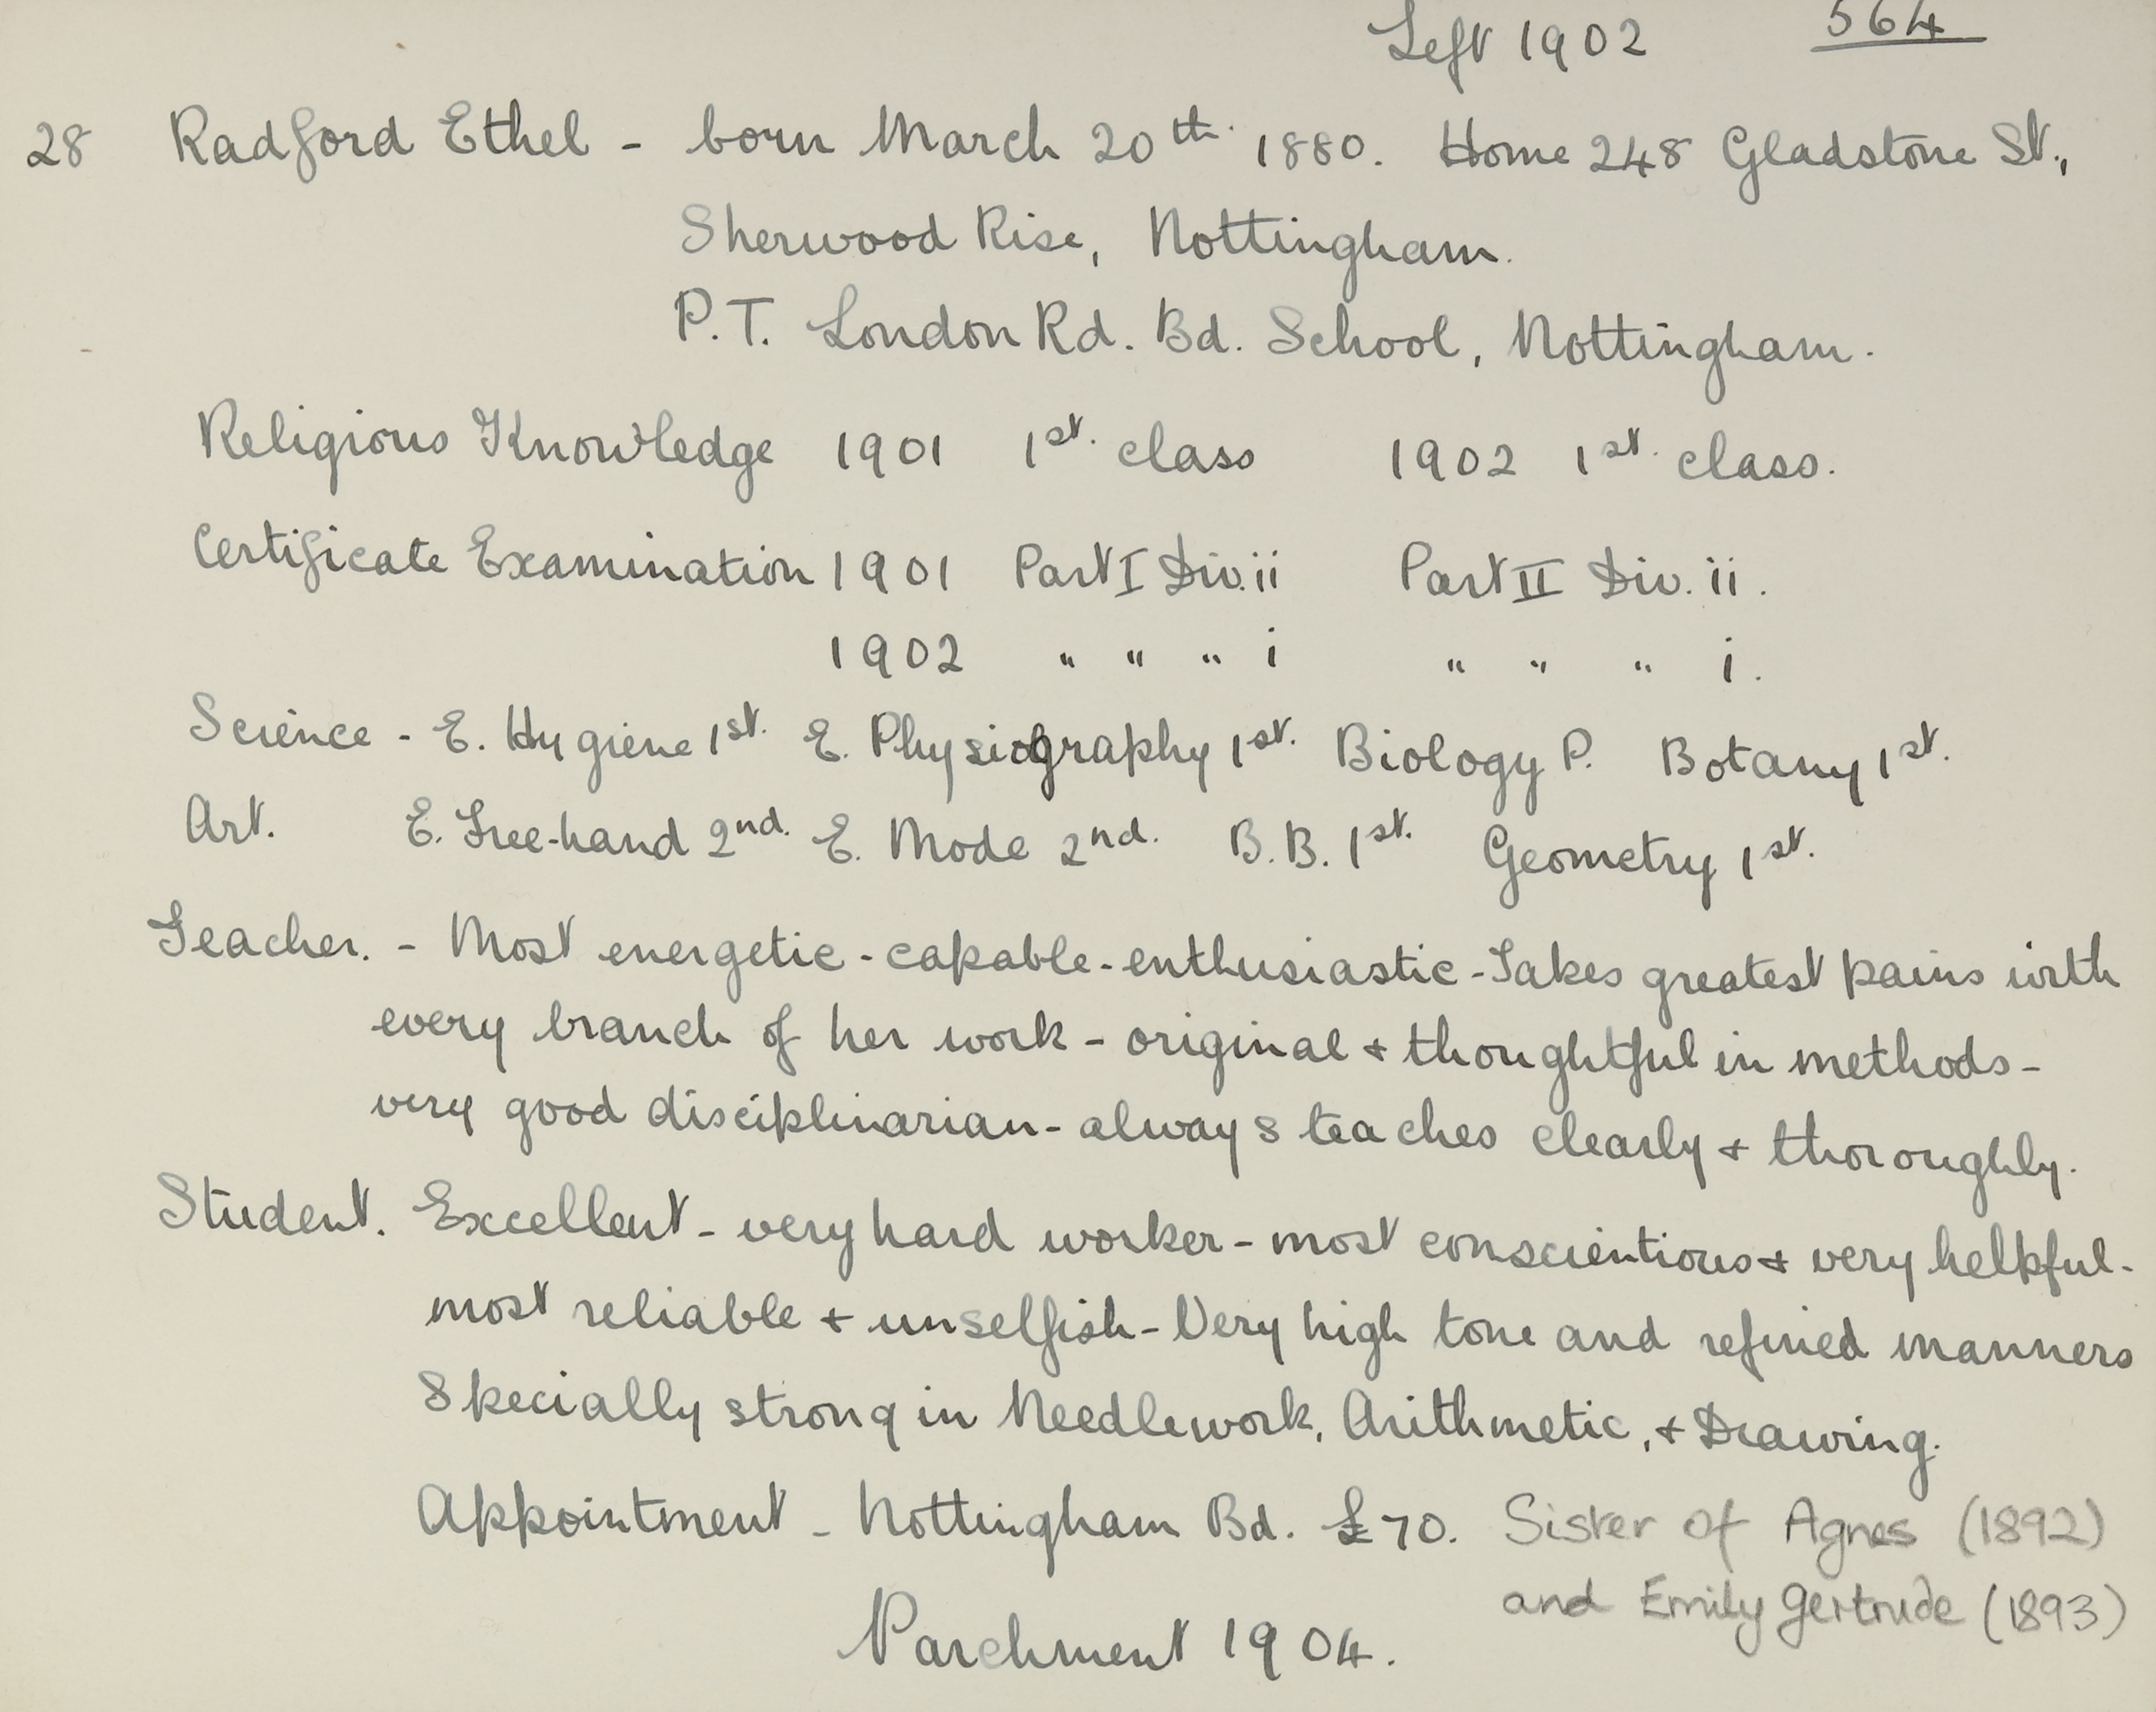 Left 1902 564
28 Radford Ethel - born March 20th. 1880. Home 248 Gladstone St.,
Sherwood Rise, Nottingham.
P.T. London Rd. Bd. School, Nottingham.
Religious Knowledge 1901 1st. class 1902 1st. class.
Certificate Examination 1901 Part I Div. ii Part II Div. ii.
1902 " " " i " " " i.
Science - E. Hygiene 1st. E. Physiography 1st. Biology P. Botany 1st.
Art. E. Free-hand 2nd. E. Mode 2nd. B.B. 1st. Geometry 1st.
Teacher. - Most energetic - capable - enthusiastic - Takes greatest pains with
every branch of her work - original + thoughtful in methods -
very good disciplinarian - always teaches clearly + thoroughly.
Student. Excellent - very hard worker - most conscientious + very helpful -
most reliable + unselfish - Very high tone and refined manners
Specially strong in Needlework, Arithmetic, + Drawing.
Appointment - Nottingham Bd. £70. Sister of Agnes (1892)
and Emily Gertrude (1893)
Parchment 1904.